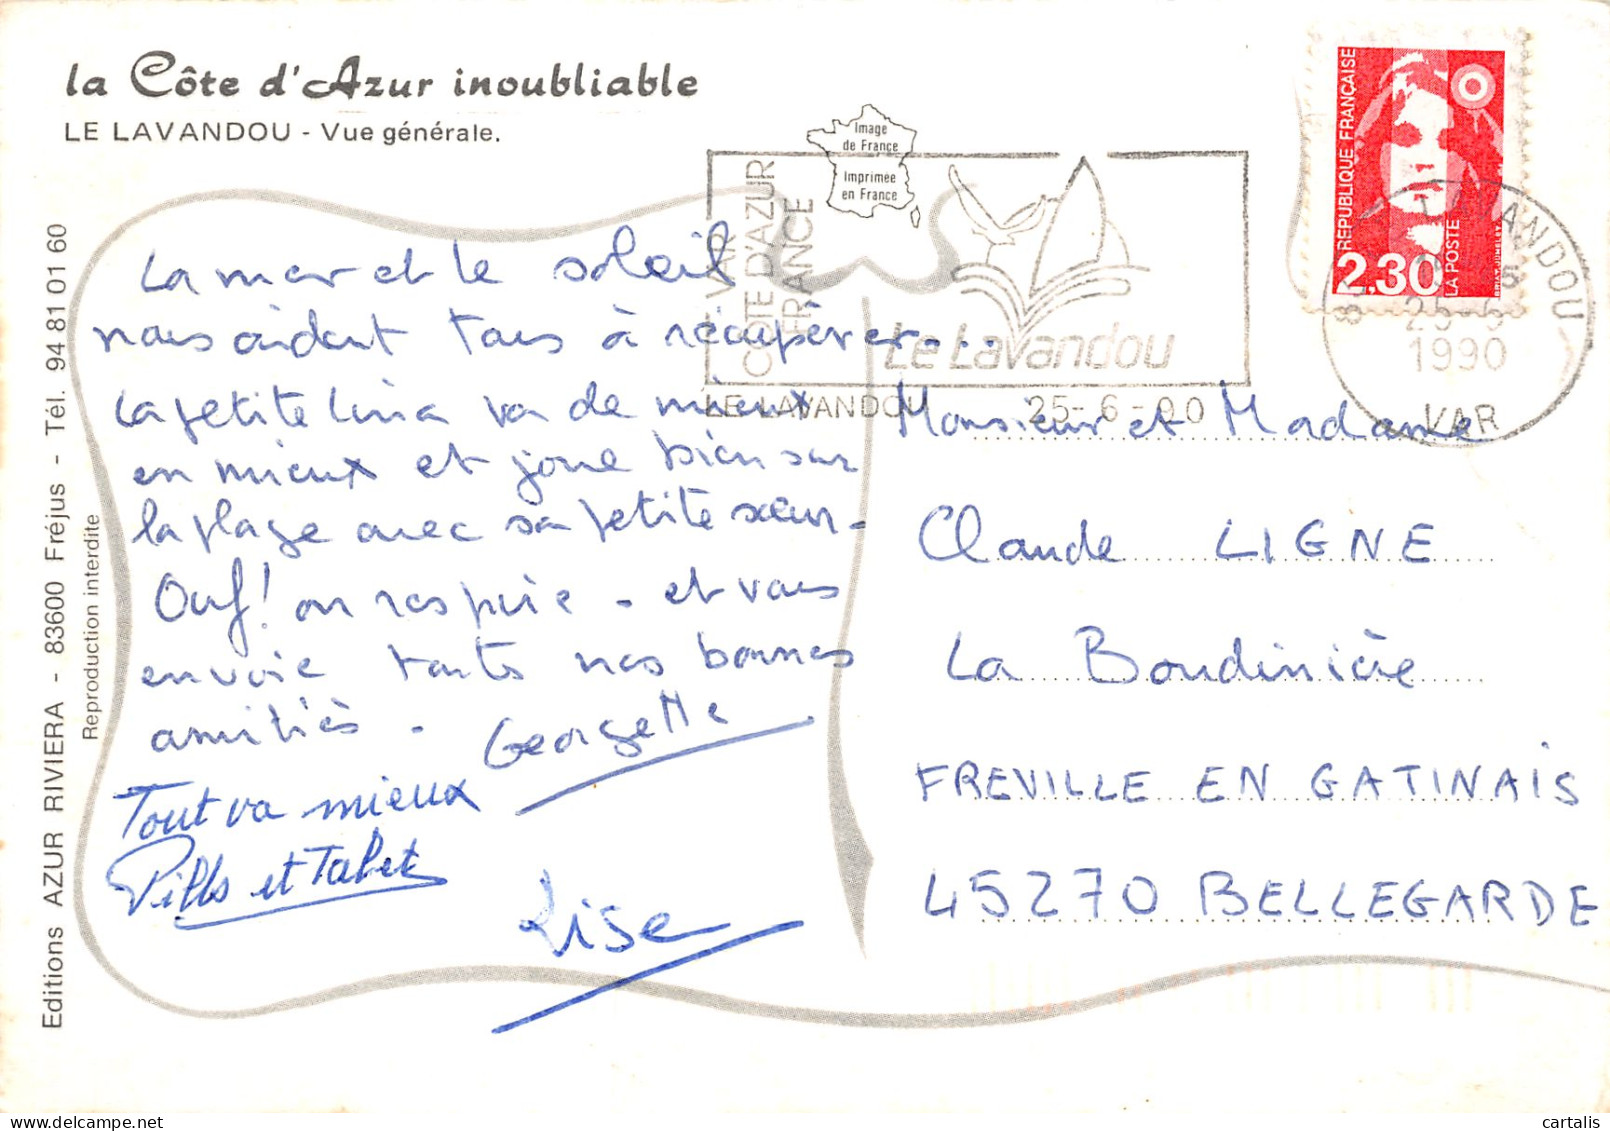 la Côte d'Azur inoubliable
LE LAVANDOU - Vue générale.
Image
de France
Imprimée
en France
VAR
COTE D'AZUR
FRANCE
Le Lavandou
LE LAVANDOU 25-6-90
REPUBLIQUE FRANÇAISE
2,30
LA POSTE
LE LAVANDOU
1990
VAR
La mer et le soleil
nous aident tous à récupérer...
La petite Lina va de mieux
en mieux et joue bien sur
la plage avec sa petite sœur.
Ouf! on respire. et vous
envoie toutes nos bonnes
amitiés. Georgette
Tout va mieux
Lise
Monsieur et Madame
Claude LIGNE
La Boudinière
FREVILLE EN GATINAIS
45270 BELLEGARDE
Editions AZUR RIVIERA - 83600 Fréjus - Tél. 94 81 01 60
Reproduction interdite
cartalis